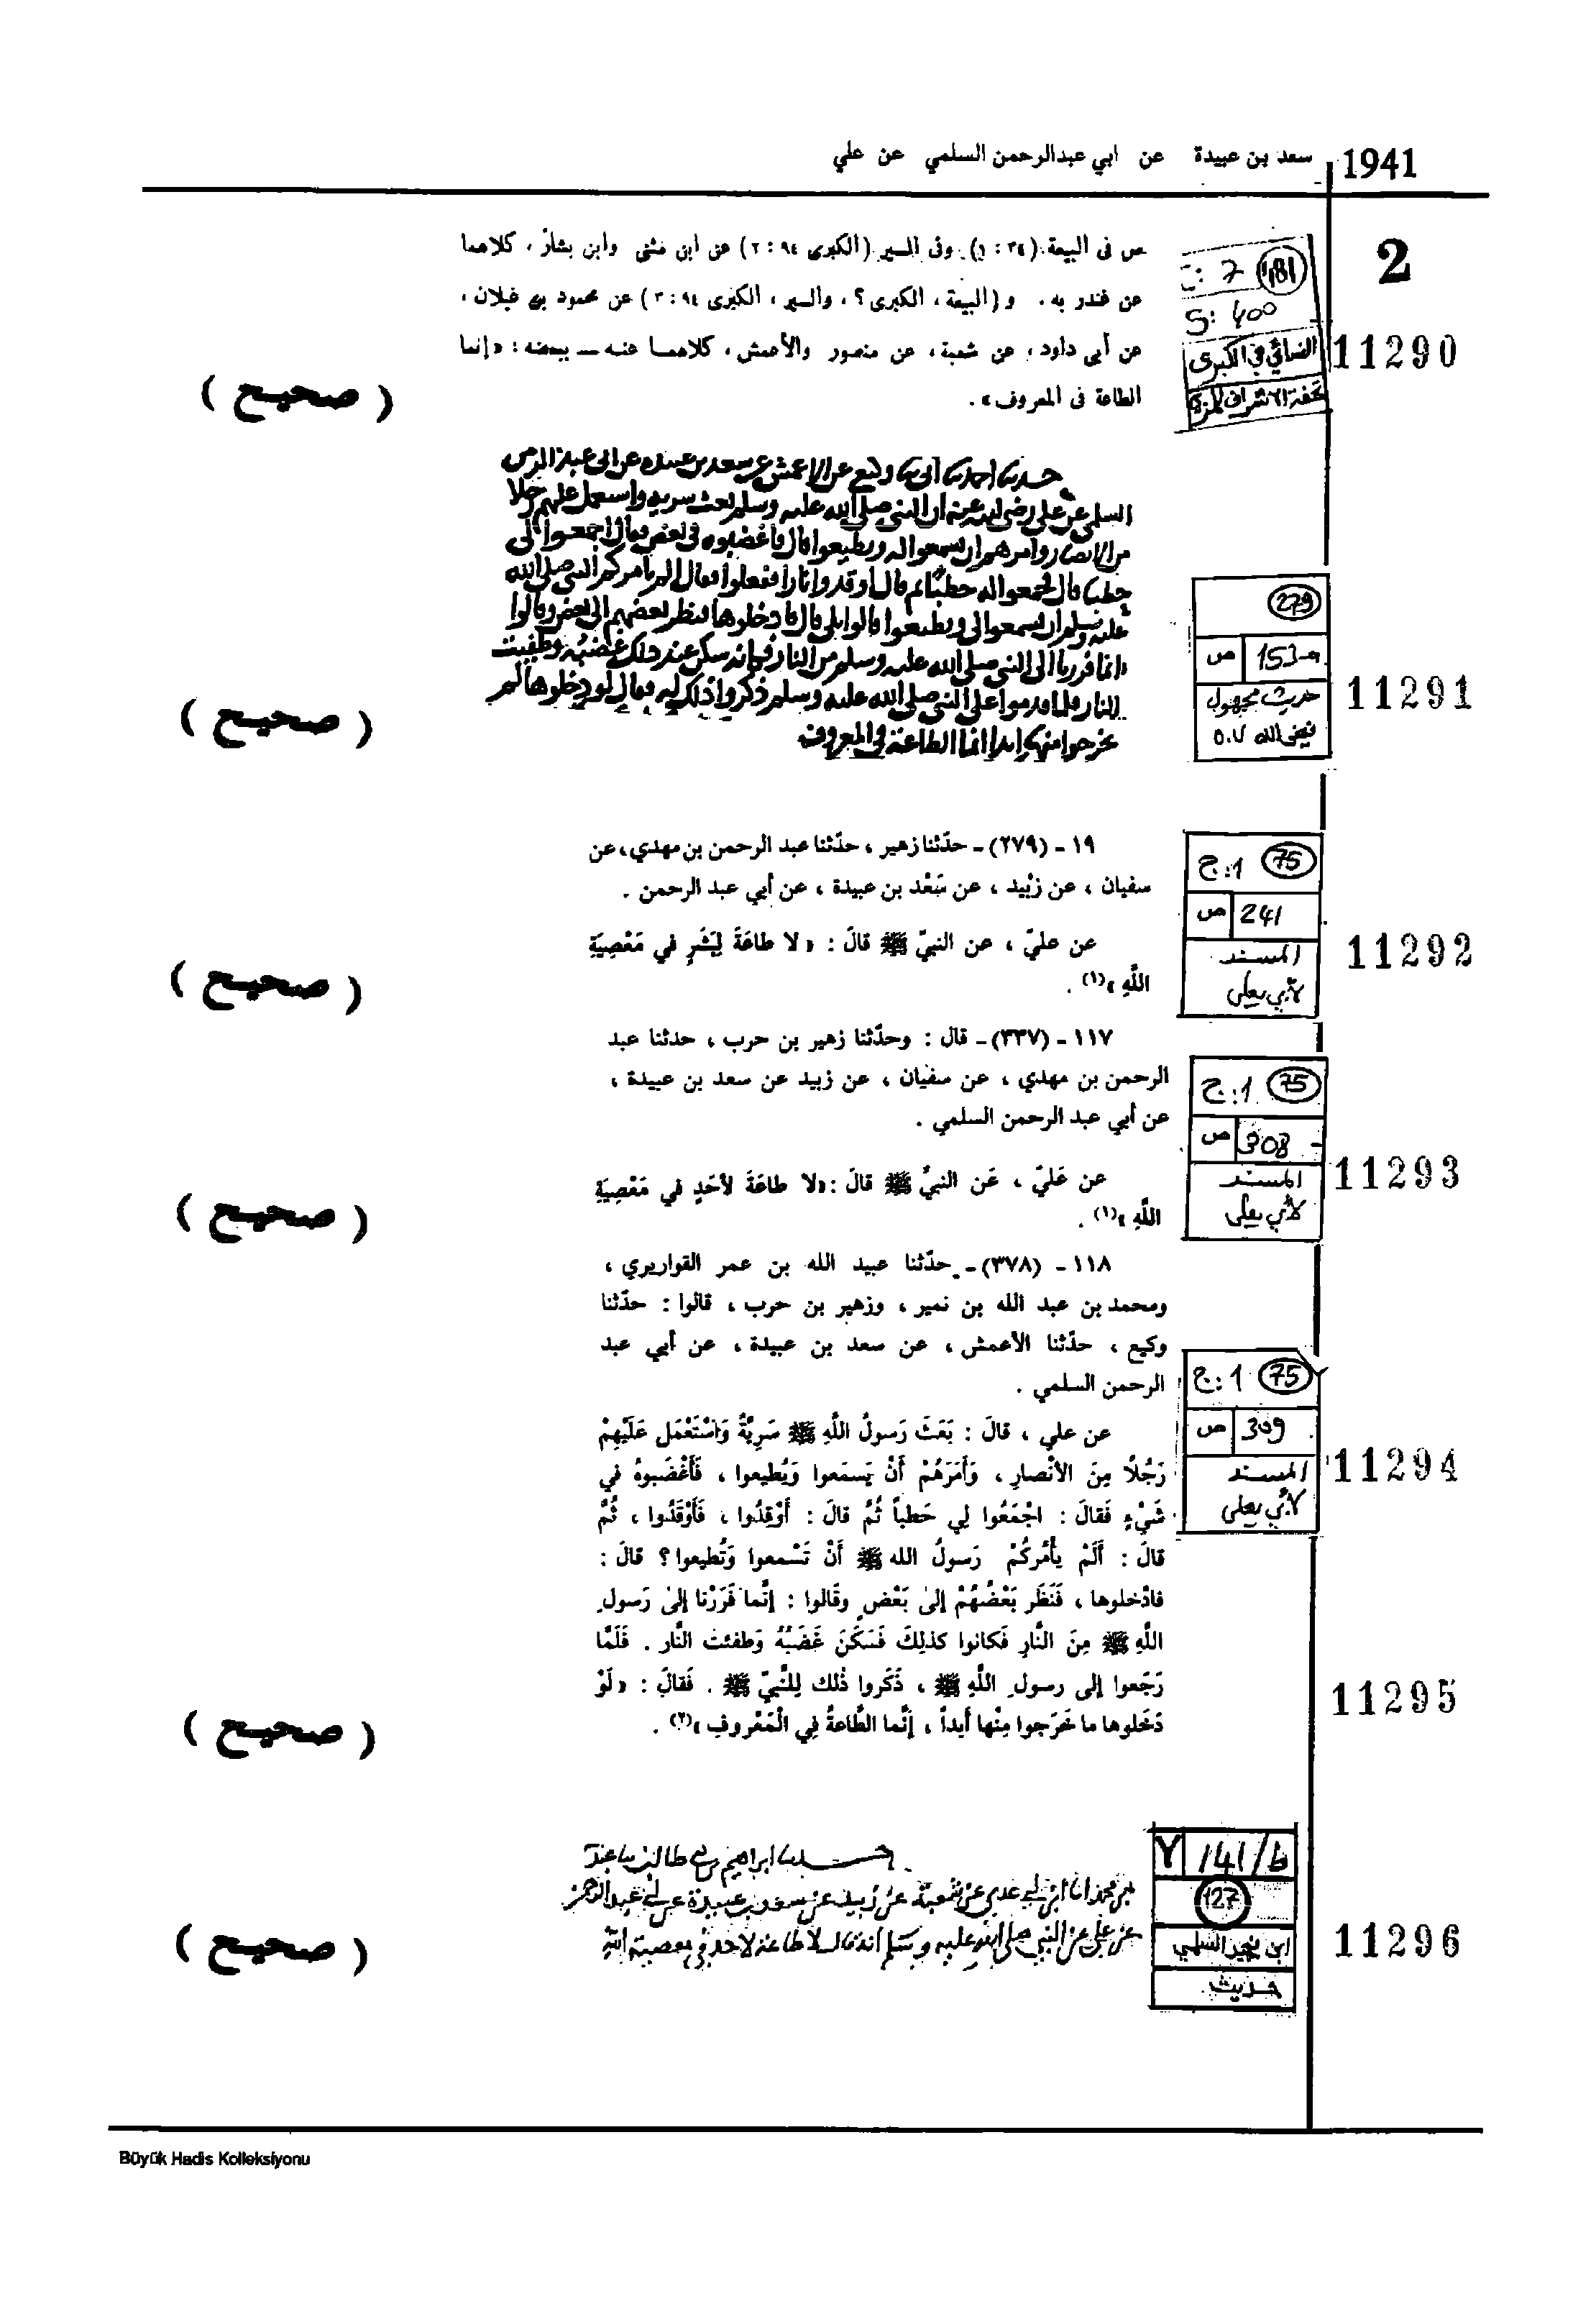 1941 سعد بن عبيدة عن ابي عبدالرحمن السلمي عن علي
2
ص فى البيعة (٣٤ : ١) وفى السير (الكبرى ٩٤ : ٢) عن ابن مثنى وابن بشار ، كلاهما
عن غندر به . و (البيعة ، الكبرى ؟ ، والسير ، الكبرى ٩٤ : ٣) عن محمود بن غيلان ،
عن أبى داود ، عن شعبة ، عن منصور والأعمش ، كلاهما عنه ــ ببعضه : « إنما
الطاعة فى المعروف » .
( صحيح )
181 7
S: 400
النسائي في الكبرى
تحفة الاشراف للمزي
11290
حدثنا احمد ثنا أبي ثنا وكيع عن الاعمش عن سعد بن عبيده عن ابى عبد الرحمن
السلمي عن علي رضي الله عنه ان النبي صلى الله عليه وسلم بعث سريه واستعمل عليهم رجلا
من الانصار وامرهم ان يسمعوا له ويطيعوا قال فاغضبوه في بعض فقال اجمعوا لي
حطبا قال فجمعوا له حطبا ثم قال اوقدوا نارا ففعلوا فقال الم يامركم النبي صلى الله
عليه وسلم ان تسمعوا لي وتطيعوا قالوا بلى قال فادخلوها فنظر بعضهم الى بعض وقالوا
انما فررنا الى النبي صلى الله عليه وسلم من النار قال سكن عند ذلك غضبه وطفيت
النار فلما قدموا على النبي صلى الله عليه وسلم ذكروا ذلك له فقال لو دخلوها لم
يخرجوا منها ابدا انما الطاعة في المعروف
( صحيح )
279
153 ص
حديث مجهول
فيض الله ٥٠٧
11291
١٩ - (٢٧٩) - حدّثنا زهير ، حدّثنا عبد الرحمن بن مهدي ، عن
سفيان ، عن زبْيد ، عن سَعْد بن عبيدة ، عن أبي عبد الرحمن .
عن عليّ ، عن النبيّ ﷺ قالَ : « لا طاعَةَ لِبَشَرٍ في مَعْصِيَةِ
اللَّهِ »(١) .
( صحيح )
75 ج:1
241 ص
المسند
لأبي يعلى
11292
١١٧ - (٣٣٧) - قال : وحدّثنا زهير بن حرب ، حدثنا عبد
الرحمن بن مهدي ، عن سفيان ، عن زبيد عن سعد بن عبيدة ،
عن أبي عبد الرحمن السلمي .
عن عَليّ ، عَن النبيِّ ﷺ قالَ : «لا طاعَةَ لأحَدٍ في مَعْصِيَةِ
اللَّهِ »(١) .
( صحيح )
75 ج:1
308 ص
المسند
لأبي يعلى
11293
١١٨ - (٣٧٨) - حدّثنا عبيد الله بن عمر القواريري ،
ومحمد بن عبد الله بن نمير ، وزهير بن حرب ، قالوا : حدّثنا
وكيع ، حدّثنا الأعمش ، عن سعد بن عبيدة ، عن أبي عبد
الرحمن السلمي .
75 ج:1
309 ص
المسند
لأبي يعلى
11294
عن علي ، قالَ : بَعَثَ رَسولُ اللَّهِ ﷺ سَرِيَّةً وَاسْتَعْمَل عَلَيْهِمْ
رَجُلاً مِنَ الأنْصارِ ، وَأمَرَهُمْ أَنْ يَسمَعوا وَيُطيعوا ، فَأَغْضَبوهُ في
شَيْءٍ فَقالَ : اجْمَعُوا لِي حَطباً ثُمَّ قالَ : أَوْقِدُوا ، فَأَوْقَدُوا ، ثُمَّ
قالَ : أَلَمْ يأْمُركُمْ رَسولُ الله ﷺ أَنْ تَسْمعوا وَتُطيعوا ؟ قالَ :
فادْخلوها ، فَنَظَر بَعْضُهُمْ إلىٰ بَعْض وقَالوا : إنَّما فَرَرْنا إلىٰ رَسولِ
اللَّهِ ﷺ مِنَ النَّارِ فَكانوا كذلِكَ فَسَكَنَ غَضَبُهُ وَطفئت النَّار . فَلَمَّا
رَجَعوا إلى رسولِ اللَّهِ ﷺ ، ذَكَروا ذٰلك لِلنَّبيّ ﷺ . فَقالَ : « لَوْ
دَخَلوها ما خَرَجوا مِنْها أَبداً ، إنَّما الطَّاعةُ فِي الْمَعْروفِ »(٢) .
( صحيح )
11295
حدثنا ابراهيم بن ابي طالب ثنا عبدة
ثنا ابن ابي عدي عن شعبة عن زبيد عن سعد بن عبيدة عن ابي عبد الرحمن
عن علي عن النبي صلى الله عليه وسلم انه قال لا طاعة لاحد في معصية الله
( صحيح )
Y 141/b
127
ابن نجيد السلمي
حديث
11296
Büyük Hadis Kolleksiyonu